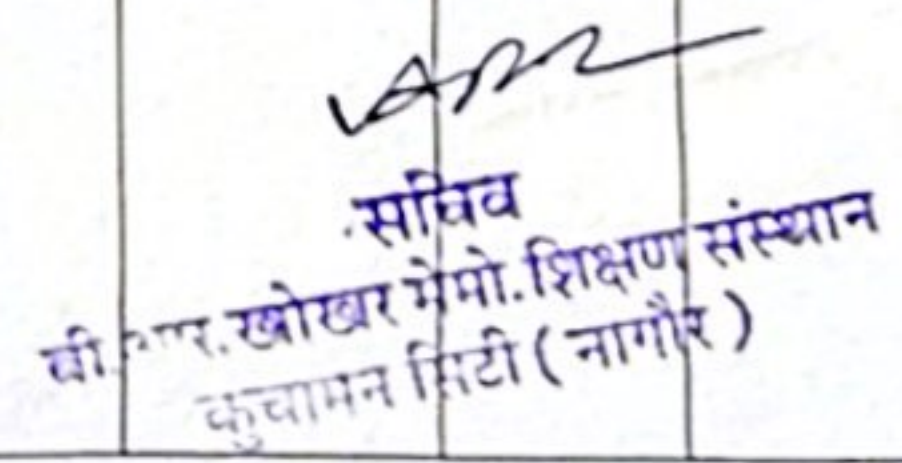 सचिव
बी.आर. खोखर मेमो. शिक्षण संस्थान
कुचामन सिटी ( नागौर )